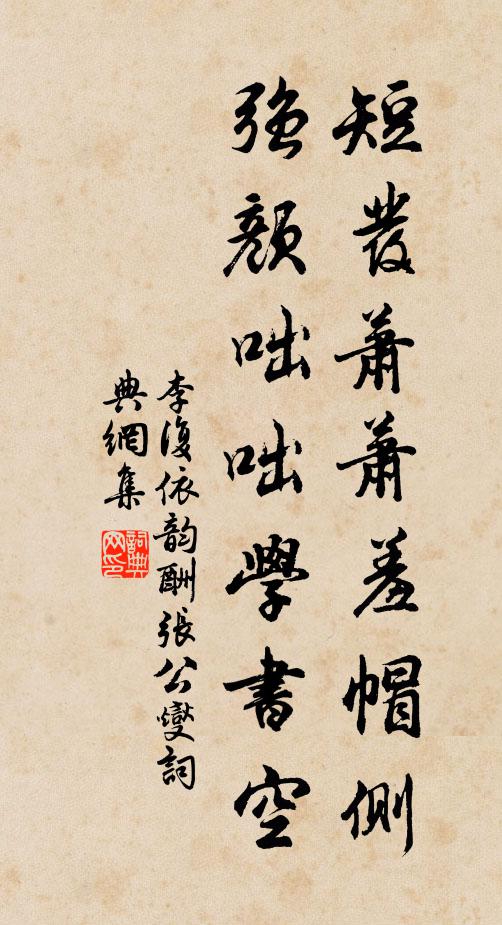 短發蕭蕭羞帽側
強顏咄咄學書空
李復依韵酬張公燮詞
典網集
詞典
网印